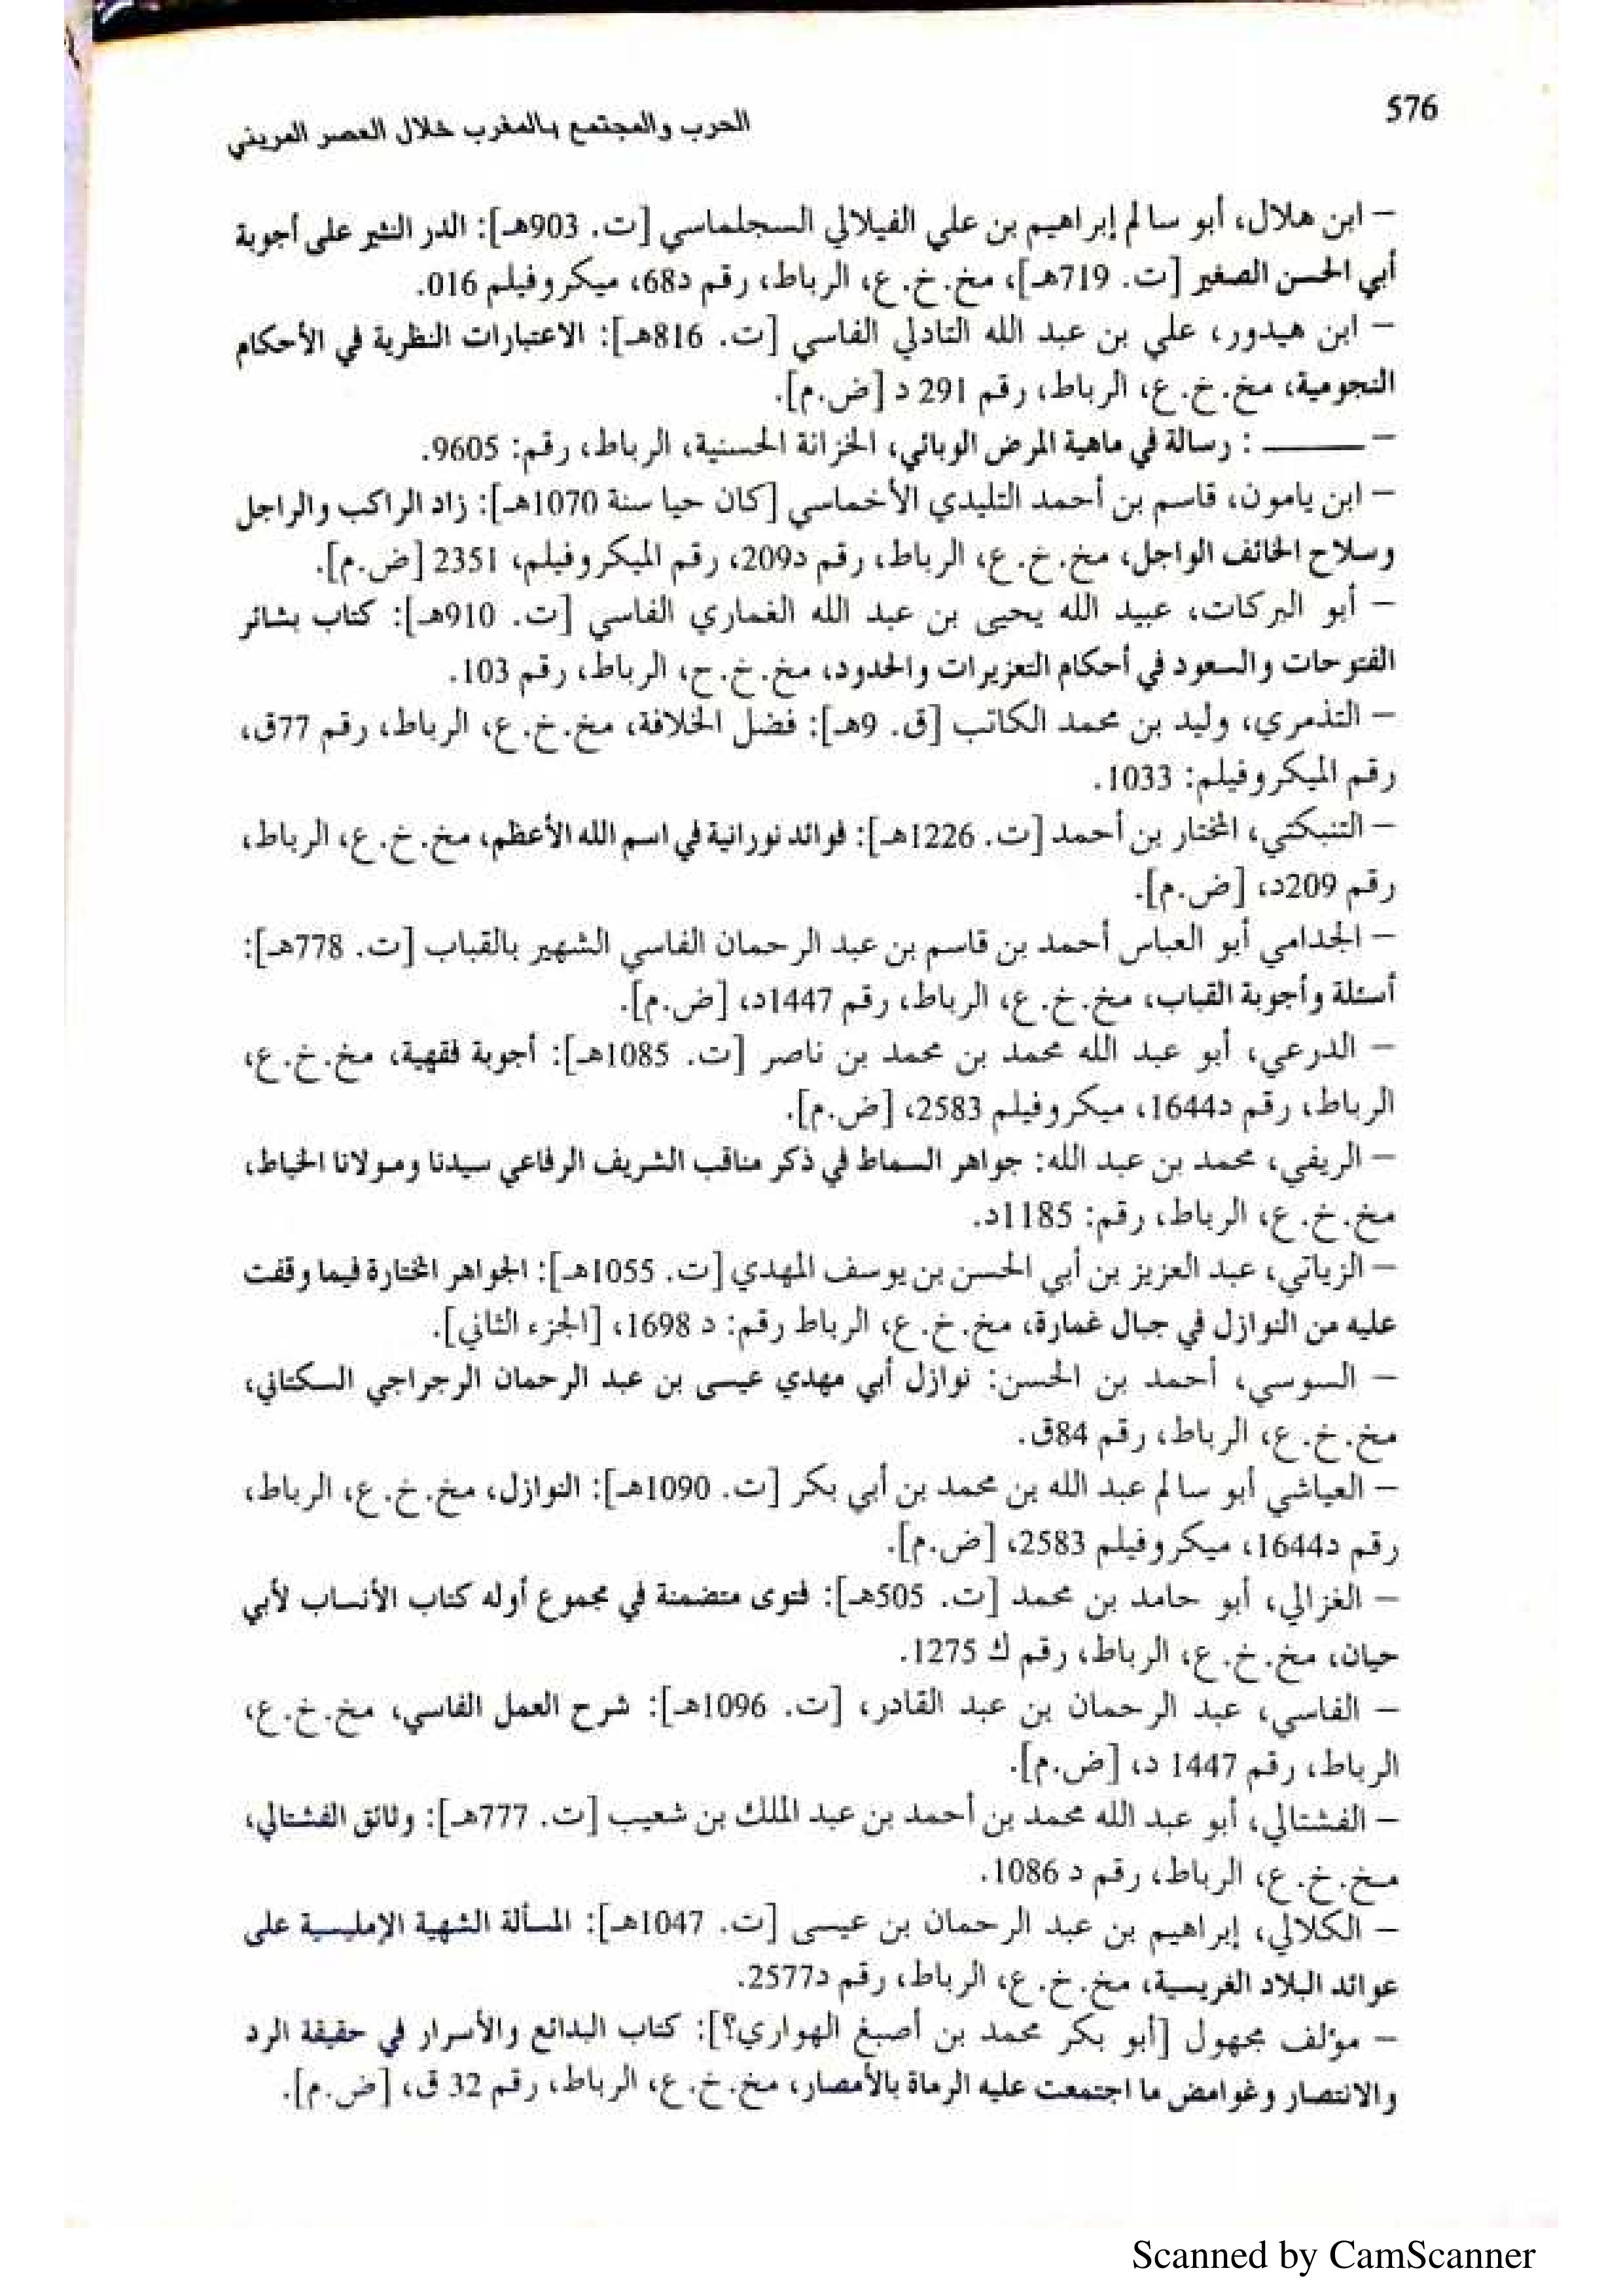 576
الحرب والمجتمع بالمغرب خلال العصر المريني
– ابن هلال، أبو سالم إبراهيم بن علي الفيلالي السجلماسي [ت. 903هـ]: الدر النثير على أجوبة
أبي الحسن الصغير [ت. 719هـ]، مخ.خ.ع، الرباط، رقم د68، ميكروفيلم 016.
– ابن هيدور، علي بن عبد الله التادلي الفاسي [ت. 816هـ]: الاعتبارات النظرية في الأحكام
النجومية، مخ.خ.ع، الرباط، رقم 291 د [ض.م].
– ـــــــــ : رسالة في ماهية المرض الوبائي، الخزانة الحسنية، الرباط، رقم: 9605.
– ابن يامون، قاسم بن أحمد التليدي الأخماسي [كان حيا سنة 1070هـ]: زاد الراكب والراجل
وسلاح الخائف الواجل، مخ.خ.ع، الرباط، رقم د209، رقم الميكروفيلم، 2351 [ض.م].
– أبو البركات، عبيد الله يحيى بن عبد الله الغماري الفاسي [ت. 910هـ]: كتاب بشائر
الفتوحات والسعود في أحكام التعزيرات والحدود، مخ.خ.ح، الرباط، رقم 103.
– التذمري، وليد بن محمد الكاتب [ق. 9هـ]: فضل الخلافة، مخ.خ.ع، الرباط، رقم 77ق،
رقم الميكروفيلم: 1033.
– التنبكتي، المختار بن أحمد [ت. 1226هـ]: فوائد نورانية في اسم الله الأعظم، مخ.خ.ع، الرباط،
رقم 209د، [ض.م].
– الجدامي أبو العباس أحمد بن قاسم بن عبد الرحمان الفاسي الشهير بالقباب [ت. 778هـ]:
أسئلة وأجوبة القباب، مخ.خ.ع، الرباط، رقم 1447د، [ض.م].
– الدرعي، أبو عبد الله محمد بن محمد بن ناصر [ت. 1085هـ]: أجوبة فقهية، مخ.خ.ع،
الرباط، رقم د1644، ميكروفيلم 2583، [ض.م].
– الريفي، محمد بن عبد الله: جواهر السماط في ذكر مناقب الشريف الرفاعي سيدنا ومولانا الخياط،
مخ.خ.ع، الرباط، رقم: 1185د.
– الزياتي، عبد العزيز بن أبي الحسن بن يوسف المهدي [ت. 1055هـ]: الجواهر المختارة فيما وقفت
عليه من النوازل في جبال غمارة، مخ.خ.ع، الرباط رقم: د 1698، [الجزء الثاني].
– السوسي، أحمد بن الحسن: نوازل أبي مهدي عيسى بن عبد الرحمان الرجراجي السكتاني،
مخ.خ.ع، الرباط، رقم 84ق.
– العياشي أبو سالم عبد الله بن محمد بن أبي بكر [ت. 1090هـ]: النوازل، مخ.خ.ع، الرباط،
رقم د1644، ميكروفيلم 2583، [ض.م].
– الغزالي، أبو حامد بن محمد [ت. 505هـ]: فتوى متضمنة في مجموع أوله كتاب الأنساب لأبي
حيان، مخ.خ.ع، الرباط، رقم ك 1275.
– الفاسي، عبد الرحمان بن عبد القادر، [ت. 1096هـ]: شرح العمل الفاسي، مخ.خ.ع،
الرباط، رقم 1447 د، [ض.م].
– الفشتالي، أبو عبد الله محمد بن أحمد بن عبد الملك بن شعيب [ت. 777هـ]: وثائق الفشتالي،
مخ.خ.ع، الرباط، رقم د 1086.
– الكلالي، إبراهيم بن عبد الرحمان بن عيسى [ت. 1047هـ]: المسألة الشهية الإمليسية على
عوائد البلاد الغريسية، مخ.خ.ع، الرباط، رقم د2577.
– مؤلف مجهول [أبو بكر محمد بن أصبغ الهواري؟]: كتاب البدائع والأسرار في حقيقة الرد
والانتصار وغوامض ما اجتمعت عليه الرماة بالأمصار، مخ.خ.ع، الرباط، رقم 32 ق، [ض.م].
Scanned by CamScanner